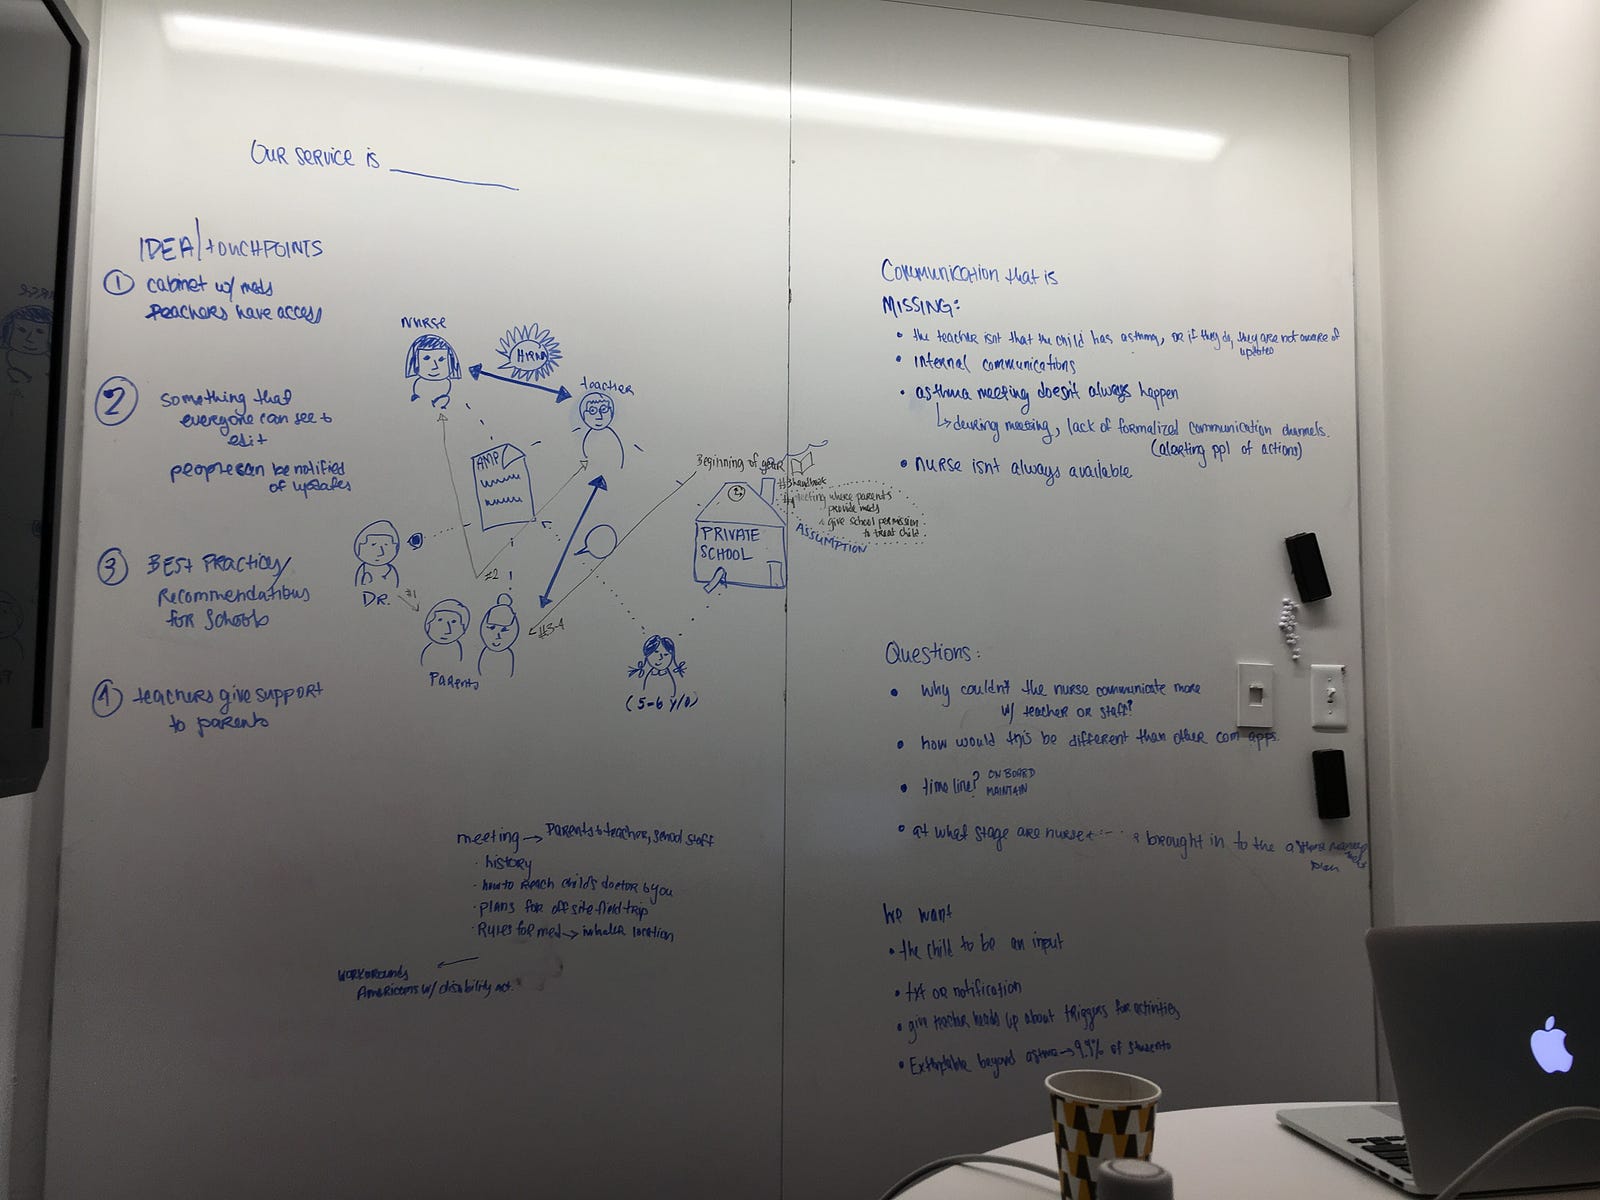 OUR SERVICE is ________
IDEA/touCHPOINTS
1 cabinet w/ meds
teachers have access
2 something that
everyone can see +
edit
people can be notified
of updates
3 BEST PRACTICE/
Recommendations
for schools
4 teachers give support
to parents
NURSE
teacher
AMP
#2
Dr.
#1
Parents
#3-4
(5-6 y/o)
Beginning of year
handbook
meeting where parents
provide meds
+ give school permission
to treat child.
ASSUMPTION
PRIVATE
SCHOOL
meeting → Parents + teacher, school staff
· history
· how to reach child's doctor by you
· plans for offsite field trip
· Rules for med → inhaler location
WORKAROUNDS
Americans w/ disability act.
Communication that is
MISSING:
• the teacher isnt that the child has asthma, or if they do, they are not aware of
updates
• internal communications
• asthma meeting doesn't always happen
↳ during meeting, lack of formalized communication channels.
(alerting ppl of actions)
• nurse isnt always available
Questions:
• Why couldn't the nurse communicate more
w/ teacher or staff?
• how would this be different than other com apps.
• time line? ON BOARD
MAINTAIN
• at what stage are nurse brought in to the
plan
We want
• the child to be an input
• txt or notification
• give teacher heads up about triggers for activities
• Extendable beyond asthma → 9.9% of students